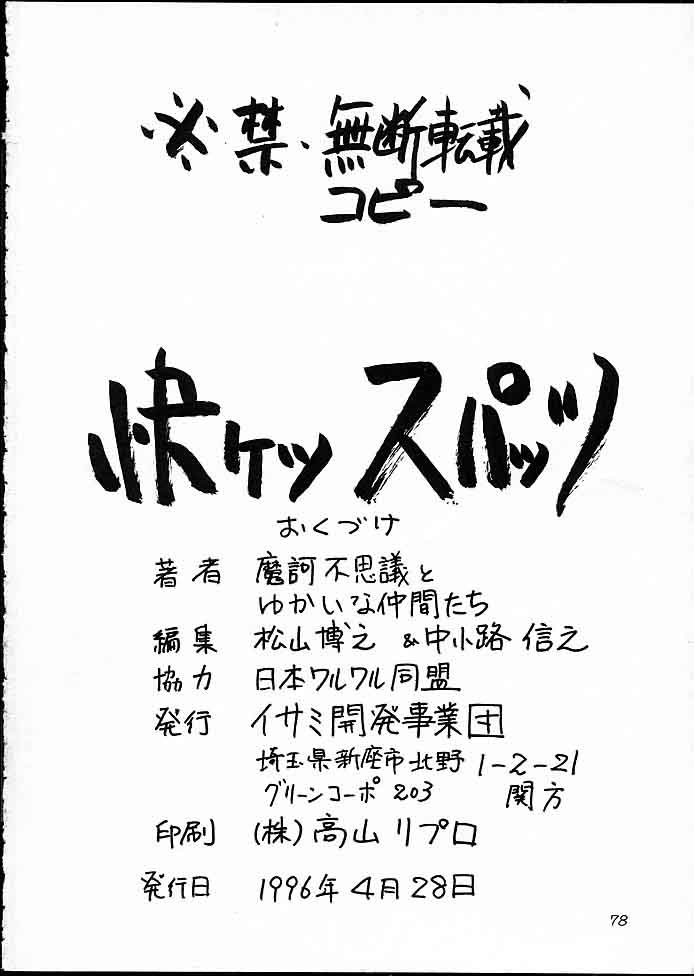 ※禁・無断転載
コピー
快ケツスパッツ
おくづけ
著者 魔訶不思議と
ゆかいな仲間たち
編集 松山博之 &中小路 信之
協力 日本ワルワル同盟
発行 イサミ開発事業団
埼玉県新座市北野 1-2-21
グリーンコーポ 203 関方
印刷 (株)高山リプロ
発行日 1996年4月28日
78